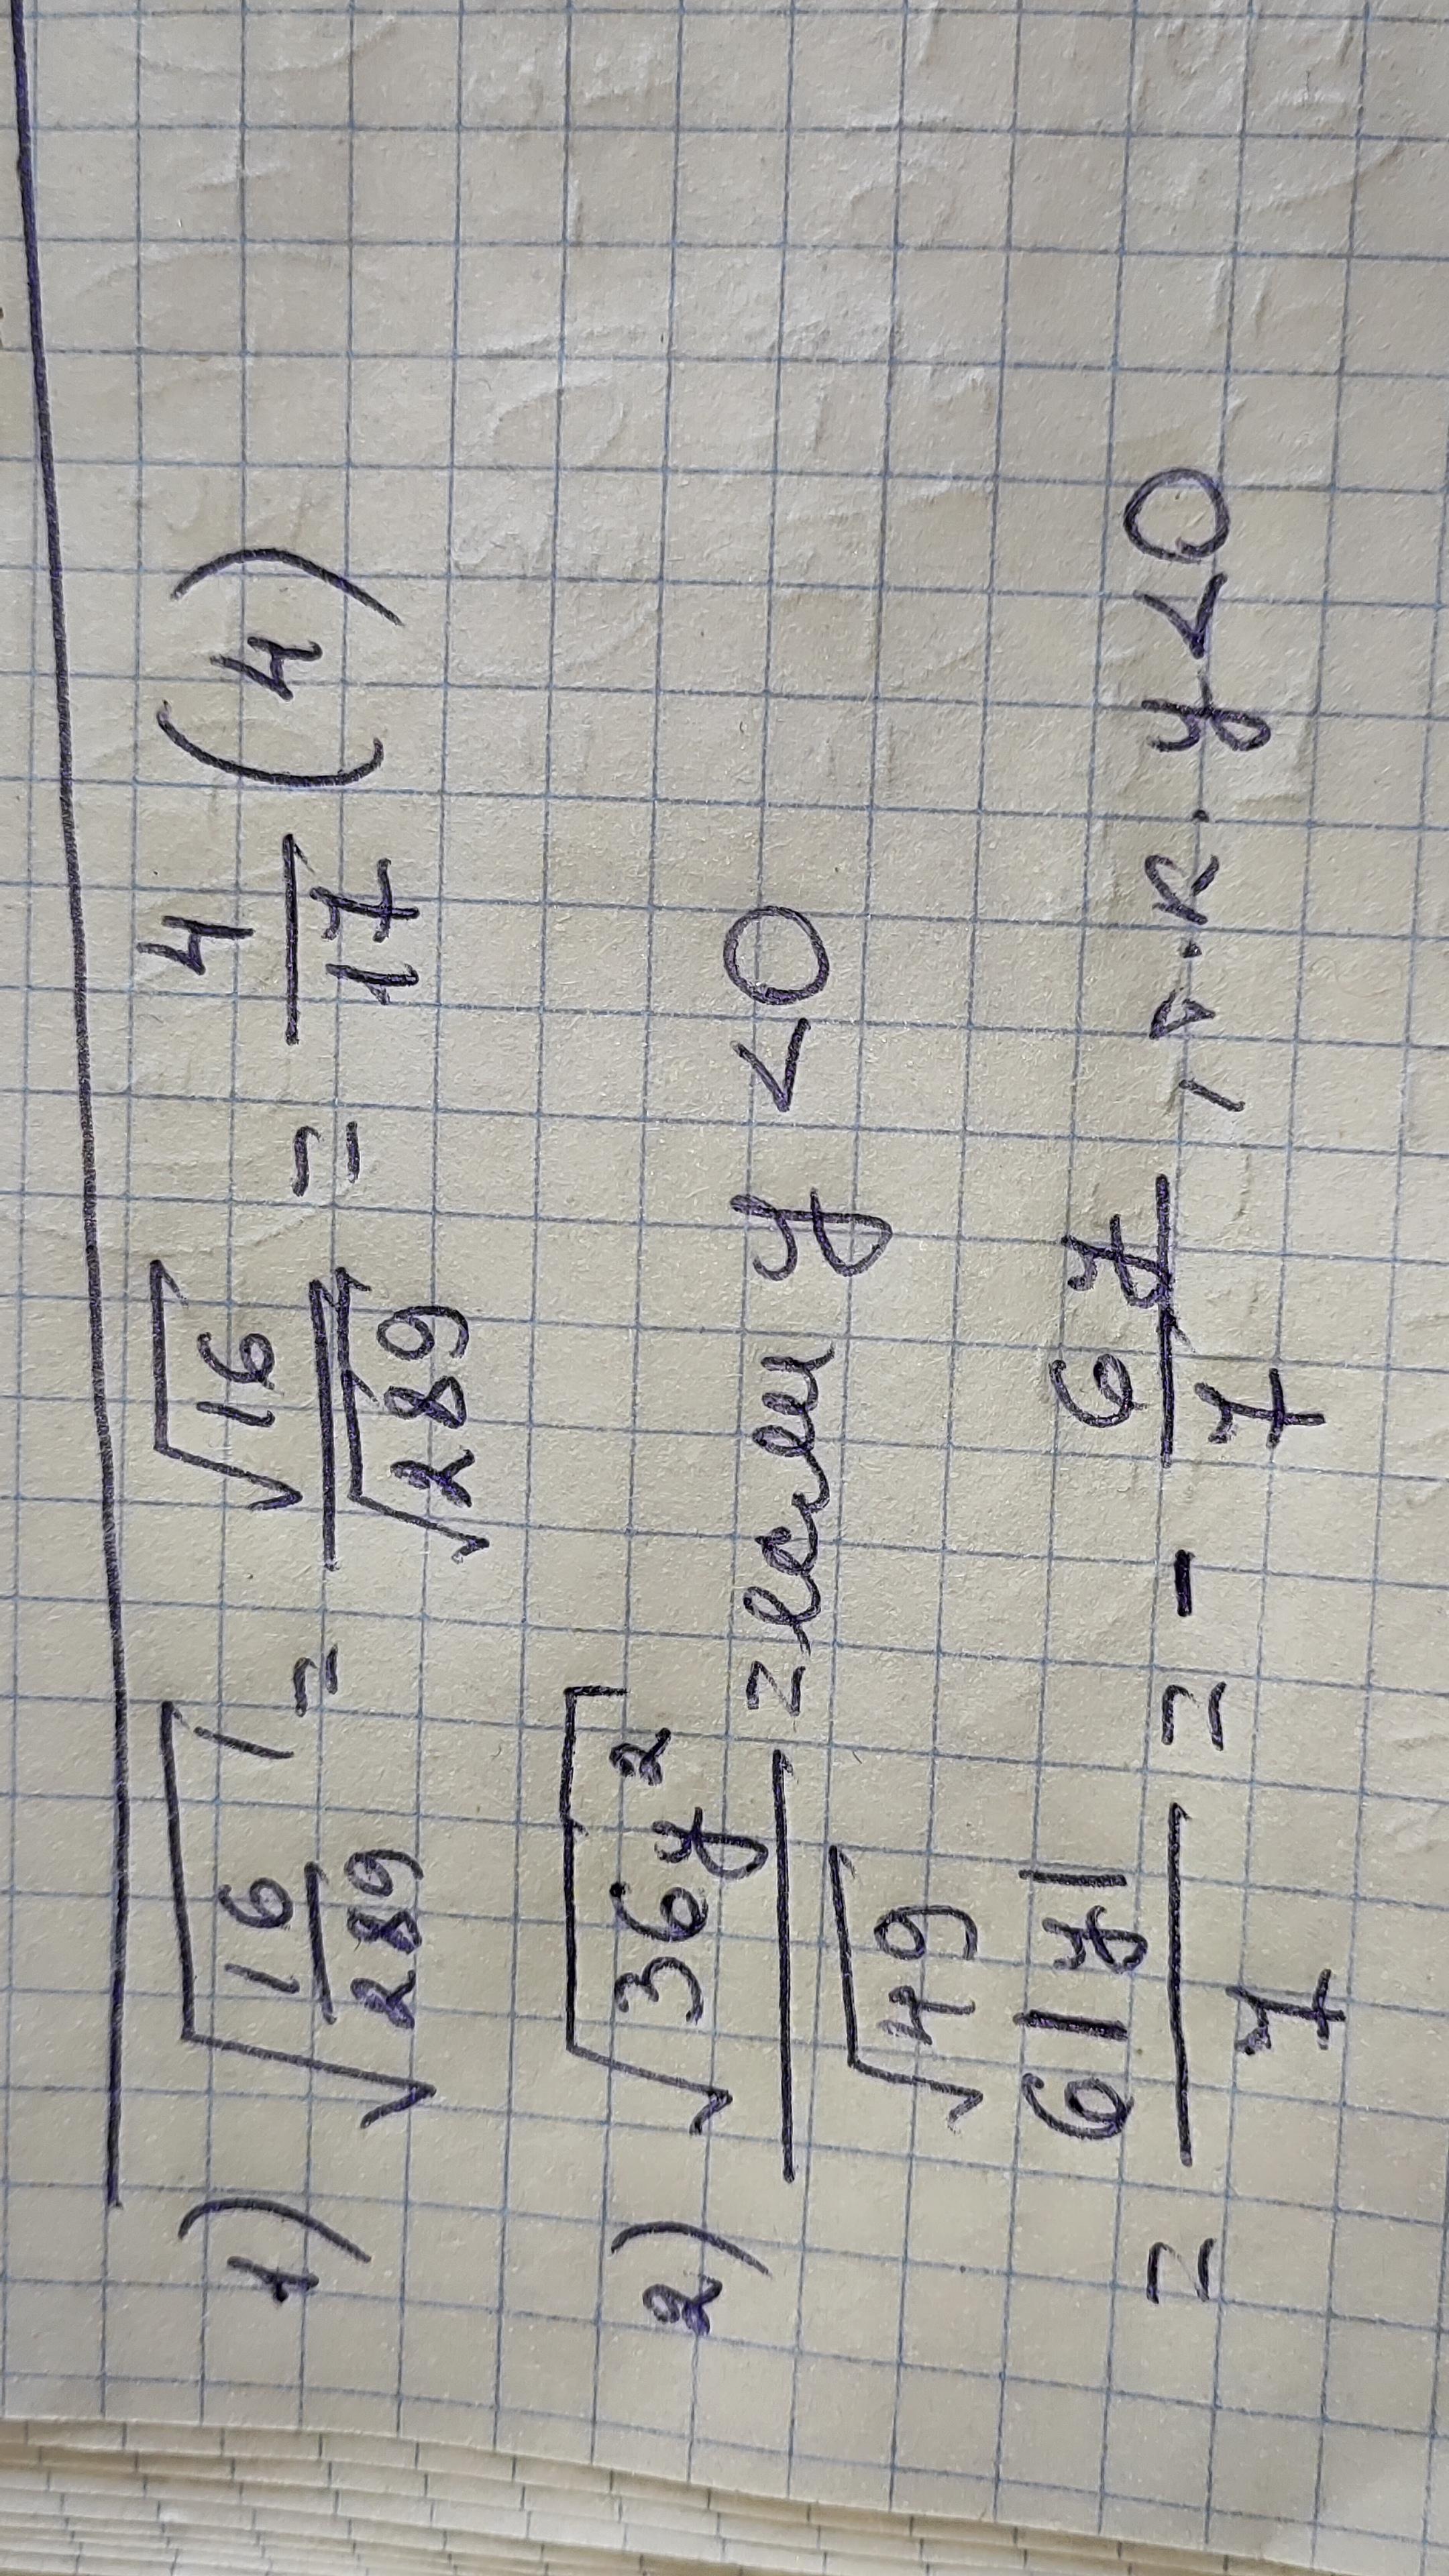 1) √(16/289) = √16/√289 = 4/17 (4)
2) √(36y²)/√49 = если y < 0
= 6|y|/7 = - 6y/7, т.к. y < 0